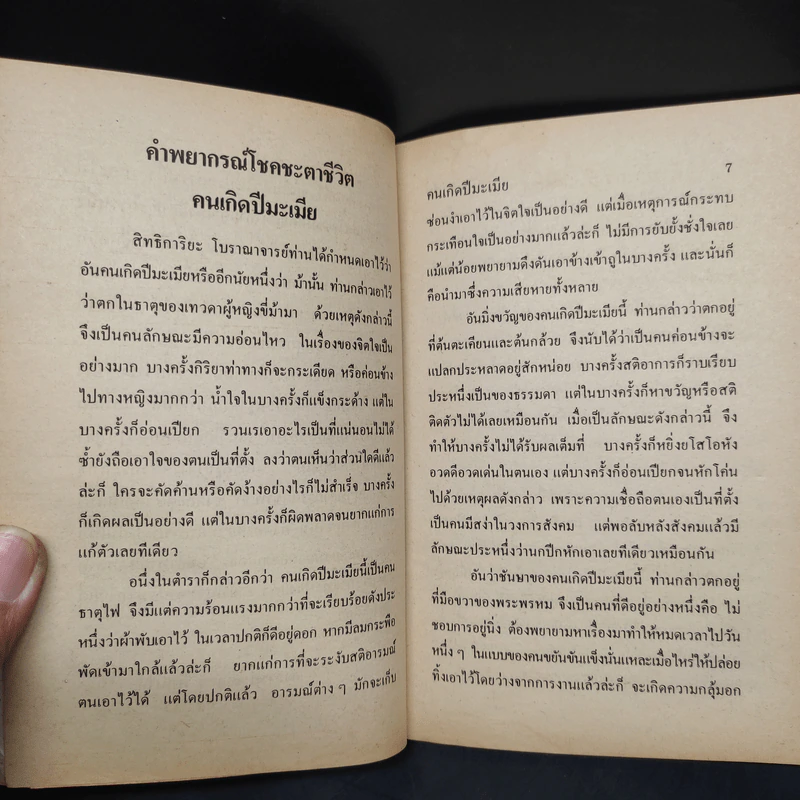 คำพยากรณ์โชคชะตาชีวิต
คนเกิดปีมะเมีย
สิทธิการิยะ โบราณาจารย์ท่านได้กำหนดเอาไว้ว่า
อันคนเกิดปีมะเมียหรืออีกนัยหนึ่งว่า ม้านั้น ท่านกล่าวเอาไว้
ว่าตกในธาตุของเทวดาผู้หญิงขี่ม้ามา ด้วยเหตุดังกล่าวนี้
จึงเป็นคนลักษณะมีความอ่อนไหว ในเรื่องของจิตใจเป็น
อย่างมาก บางครั้งกิริยาท่าทางก็จะกระเดียด หรือค่อนข้าง
ไปทางหญิงมากกว่า น้ำใจในบางครั้งก็แข็งกระด้าง แต่ใน
บางครั้งก็อ่อนเปียก รวนเรเอาอะไรเป็นที่แน่นอนไม่ได้
ซ้ำยังถือเอาใจของตนเป็นที่ตั้ง ลงว่าตนเห็นว่าส่วนใดดีแล้ว
ล่ะก็ ใครจะคัดค้านหรือคัดง้างอย่างไรก็ไม่สำเร็จ บางครั้ง
ก็เกิดผลเป็นอย่างดี แต่ในบางครั้งก็ผิดพลาดจนยากแก่การ
แก้ตัวเลยทีเดียว
อนึ่งในตำราก็กล่าวอีกว่า คนเกิดปีมะเมียนี้เป็นคน
ธาตุไฟ จึงมีแต่ความร้อนแรงมากกว่าที่จะเรียบร้อยดังประ
หนึ่งว่าผ้าพับเอาไว้ ในเวลาปกติก็ดีอยู่ดอก หากมีลมกระพือ
พัดเข้ามาใกล้แล้วล่ะก็ ยากแก่การที่จะระงับสติอารมณ์
ตนเอาไว้ได้ แต่โดยปกติแล้ว อารมณ์ต่าง ๆ มักจะเก็บ
7
คนเกิดปีมะเมีย
ซ่อนงำเอาไว้ในจิตใจเป็นอย่างดี แต่เมื่อเหตุการณ์กระทบ
กระเทือนใจเป็นอย่างมากแล้วล่ะก็ ไม่มีการยับยั้งชั่งใจเลย
แม้แต่น้อยพยายามดึงดันเอาข้างเข้าถูในบางครั้ง และนั่นก็
คือนำมาซึ่งความเสียหายทั้งหลาย
อันมิ่งขวัญของคนเกิดปีมะเมียนี้ ท่านกล่าวว่าตกอยู่
ที่ต้นตะเคียนและต้นกล้วย จึงนับได้ว่าเป็นคนค่อนข้างจะ
แปลกประหลาดอยู่สักหน่อย บางครั้งสติอาการก็ราบเรียบ
ประหนึ่งเป็นของธรรมดา แต่ในบางครั้งก็หาขวัญหรือสติ
ติดตัวไม่ได้เลยเหมือนกัน เมื่อเป็นลักษณะดังกล่าวนี้ จึง
ทำให้บางครั้งไม่ได้รับผลเต็มที่ บางครั้งก็หยิ่งยโสโอหัง
อวดดีอวดเด่นในตนเอง แต่บางครั้งก็อ่อนเปียกจนหักโค่น
ไปด้วยเหตุผลดังกล่าว เพราะความเชื่อถือตนเองเป็นที่ตั้ง
เป็นคนมีสง่าในวงการสังคม แต่พอลับหลังสังคมแล้วมี
ลักษณะประหนึ่งว่านกปีกหักเอาเลยทีเดียวเหมือนกัน
อันว่าชันษาของคนเกิดปีมะเมียนี้ ท่านกล่าวตกอยู่
ที่มือขวาของพระพรหม จึงเป็นคนที่ดีอยู่อย่างหนึ่งคือ ไม่
ชอบการอยู่นิ่ง ต้องพยายามหาเรื่องมาทำให้หมดเวลาไปวัน
หนึ่ง ๆ ในแบบของคนขยันขันแข็งนั่นแหละเมื่อไหร่ให้ปล่อย
ทิ้งเอาไว้โดยว่างจากการงานแล้วล่ะก็ จะเกิดความกลุ้มอก